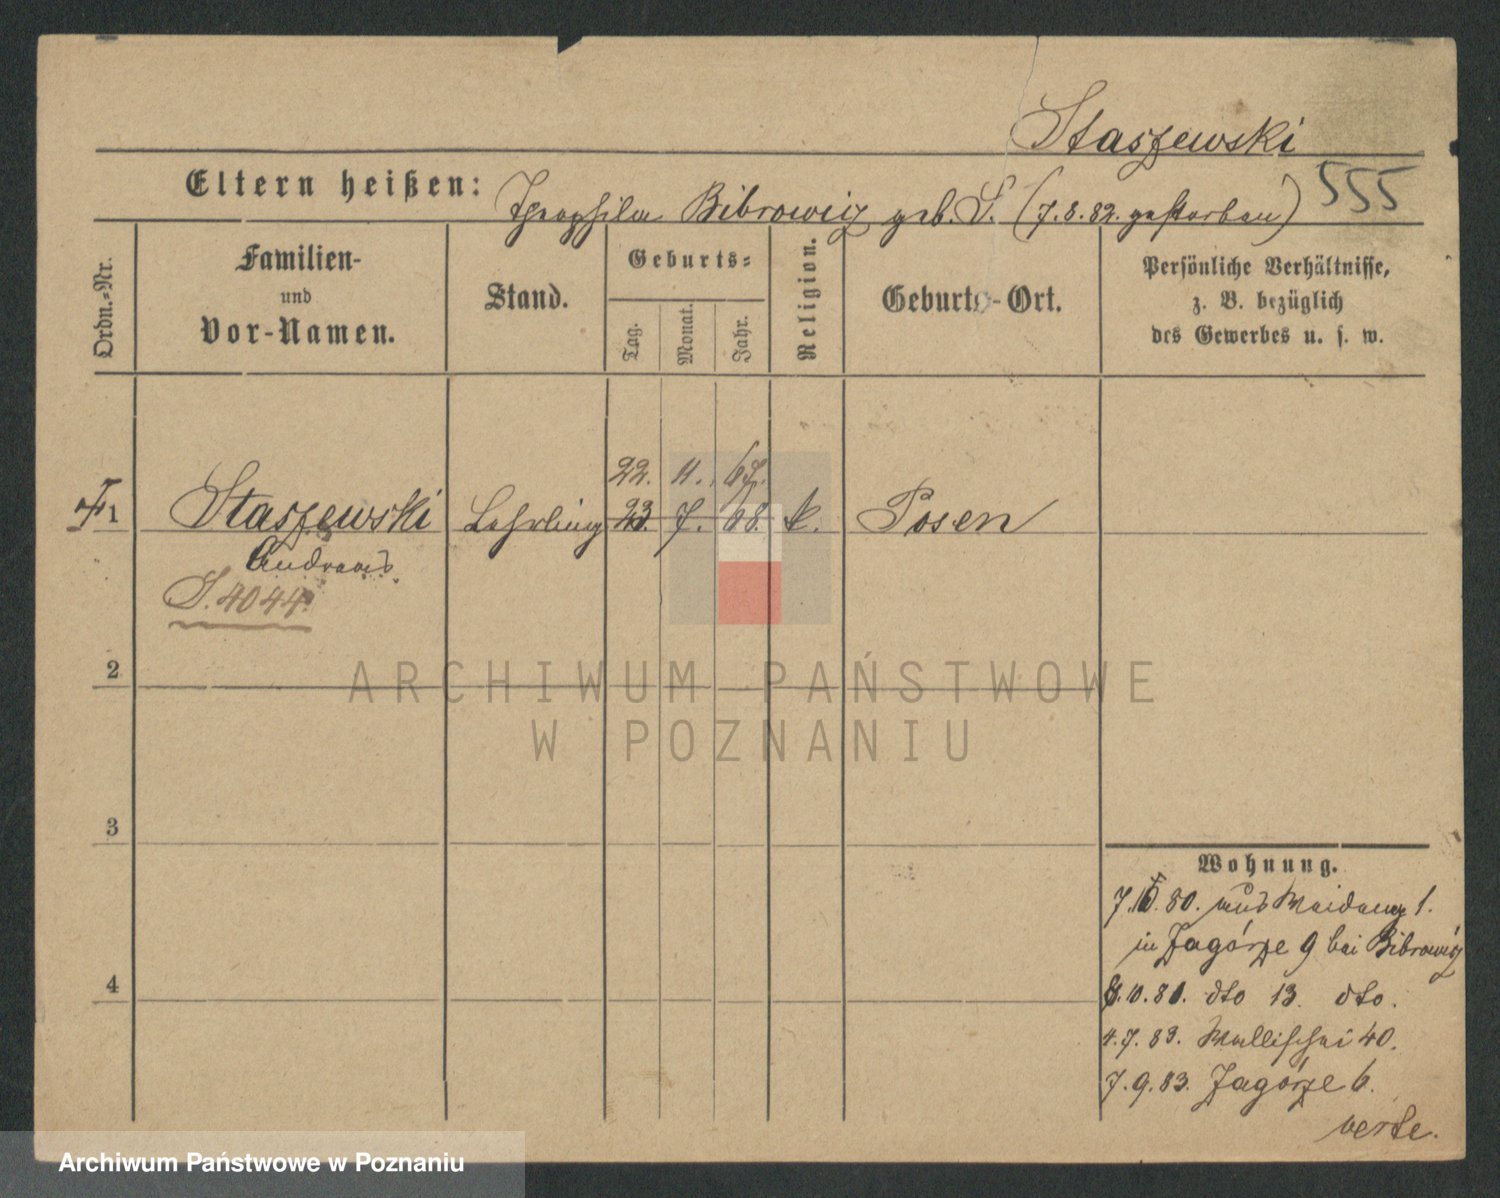 Staszewski
555
Eltern heißen: Theophila Bibrowicz geb. S. (7.8.82. gestorben)
Ordn.-Nr.
Familien-
und
Vor-Namen.
Stand.
Geburts-
Tag.
Monat.
Jahr.
Religion.
Geburts-Ort.
Persönliche Verhältnisse,
z. B. bezüglich
des Gewerbes u. s. w.
22. 11. 67.
1 Staszewski Lehrling 23. 7. 68. k. Posen
Andreas
S. 4044.
2
ARCHIWUM PAŃSTWOWE
W POZNANIU
3
4
Wohnung.
7.10.80. aus
in Zagórze 9 bei Bibrowicz
8.10.81. dto 13. dto.
4.7.83. Wallischei 40.
7.9.83. Zagórze 6.
verte.
Archiwum Państwowe w Poznaniu